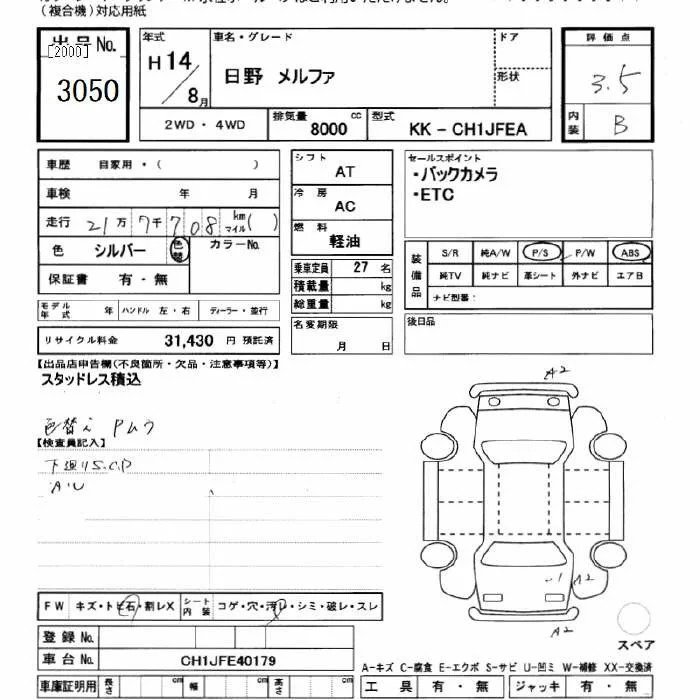 (複合機)対応用紙
出品No.
[2000]
3050
年式
H14/8月
車名・グレード
日野 メルファ
ドア
形状
評価点
3.5
内装
B
2WD・4WD
排気量 8000 cc
型式 KK-CH1JFEA
車歴 自家用・( )
車検 年 月
走行 21万7千708 km マイル( )
色 シルバー 色替 カラーNo.
保証書 有・無
シフト
AT
冷房
AC
燃料
軽油
乗車定員 27 名
積載量 kg
総重量 kg
セールスポイント
・バックカメラ
・ETC
装備品
S/R 純A/W P/S P/W ABS
純TV 純ナビ 革シート 外ナビ エアB
ナビ型番:
モデル年式 年 ハンドル 左・右 ディーラー・並行
リサイクル料金 31,430 円 預託済
名変期限
月 日
後日品
【出品店申告欄(不良箇所・欠品・注意事項等)】
スタッドレス積込
色替え Pムラ
【検査員記入】
下廻りS.C.P
A.U
A2
1 A2
A2
FW キズ・トビ石・割レX シート内装 コゲ・穴・汚レ・シミ・破レ・スレ
スペア
登録No.
車台No. CH1JFE40179
A-キズ C-腐食 E-エクボ S-サビ U-凹ミ W-補修 XX-交換済
車庫証明用 長さ cm 幅 cm 高さ cm
工具 有・無 ジャッキ 有・無